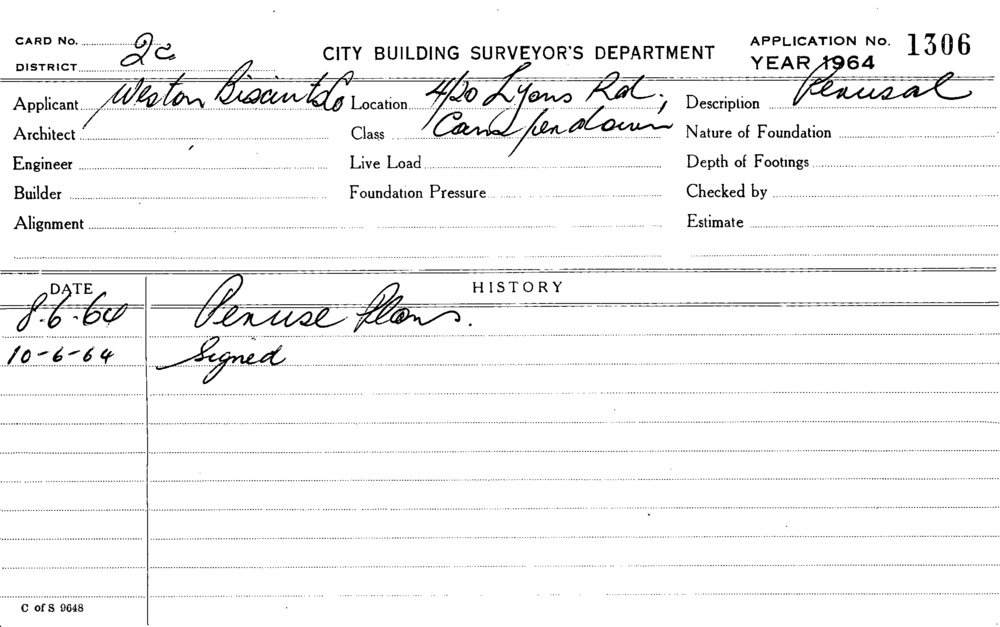 CARD No.
DISTRICT 2c
CITY BUILDING SURVEYOR'S DEPARTMENT
APPLICATION No. 1306
YEAR 1964
Applicant Weston Biscuit Co Location 4/20 Lyons Rd, Description Perusal
Architect Class Camperdown Nature of Foundation
Engineer Live Load Depth of Footings
Builder Foundation Pressure Checked by
Alignment Estimate
DATE HISTORY
8.6.64 Peruse Plans.
10-6-64 Signed
C of S 9648